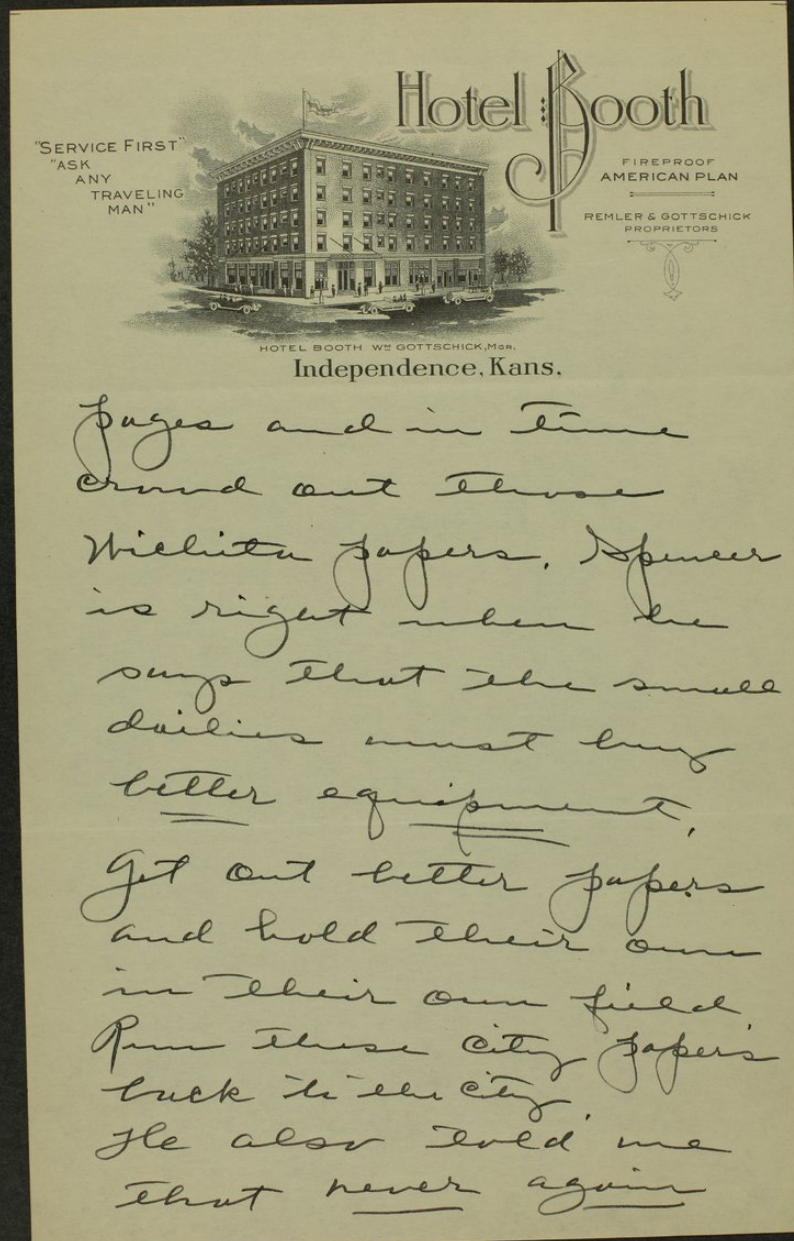 Hotel Booth
"SERVICE FIRST"
"ASK
ANY
TRAVELING
MAN"
FIREPROOF
AMERICAN PLAN
REMLER & GOTTSCHICK
PROPRIETORS
HOTEL BOOTH WM GOTTSCHICK, MGR.
Independence, Kans.
pages and in time
crowd out those
Wichita papers. Spencer
is right when he
says that the small
dailies must buy
better equipment,
Get out better papers
and hold their own
in their own field.
Run these city papers
back to the city.
He also told me
that never again